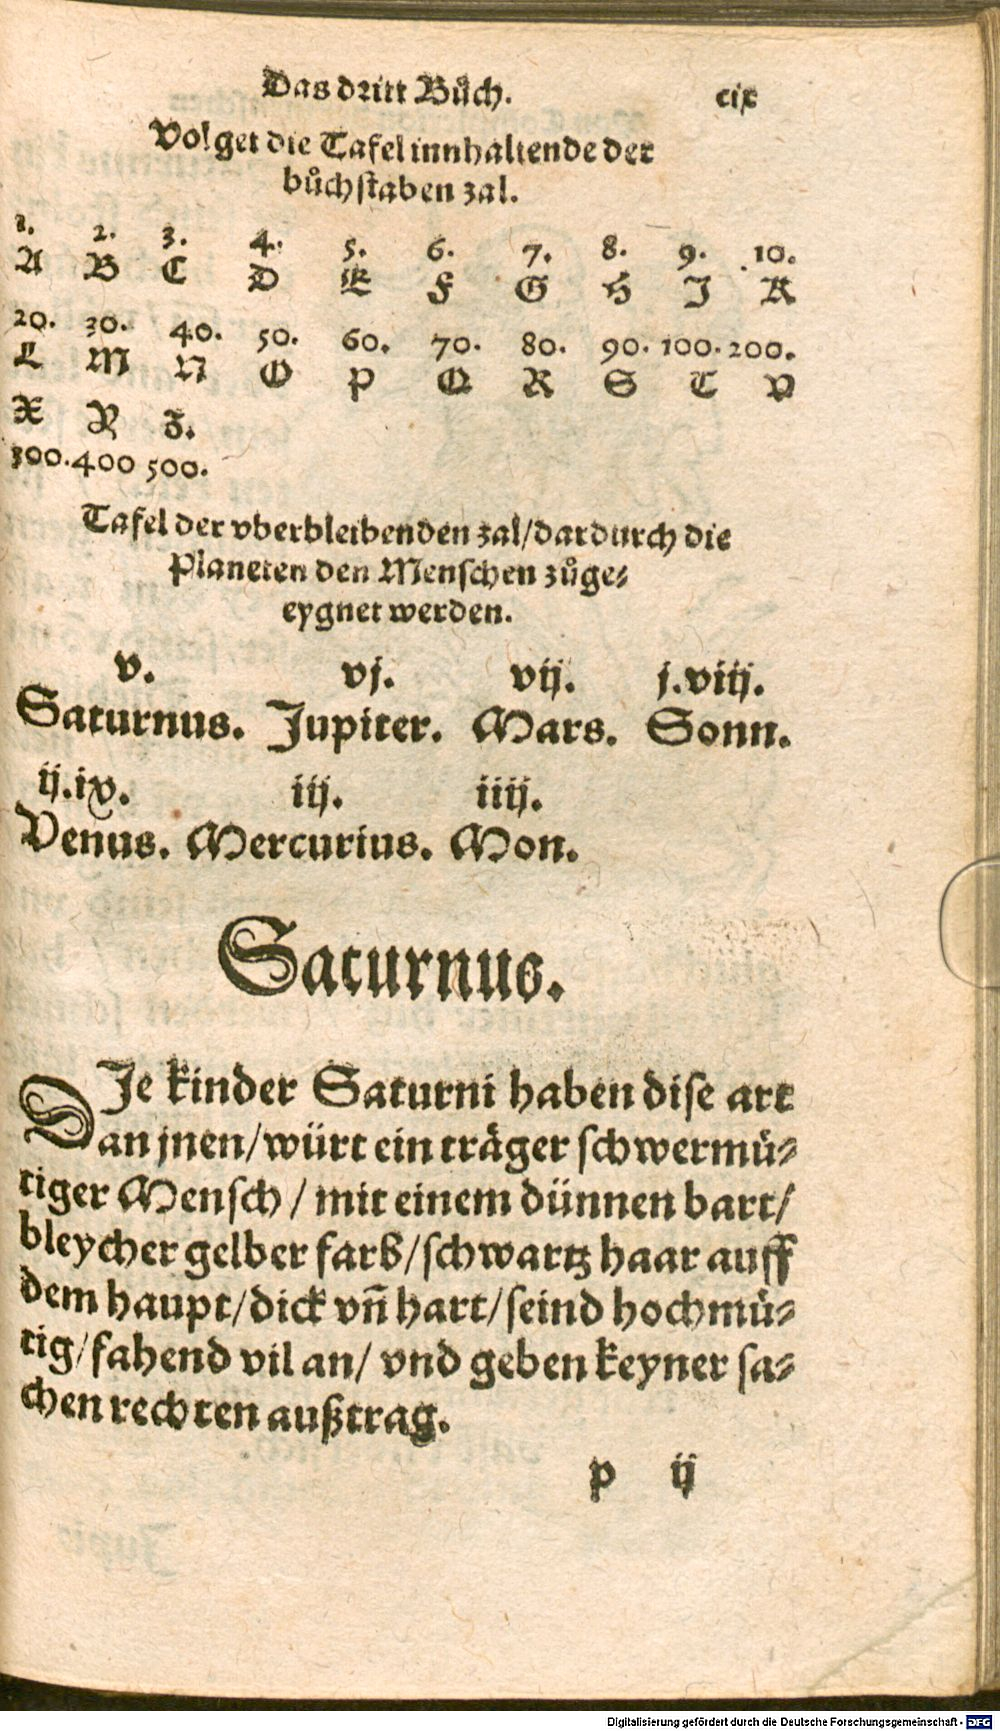 Das dritt Bůch. cix
Volget die Tafel innhaltende der
bůchstaben zal.
1. 2. 3. 4. 5. 6. 7. 8. 9. 10.
A B C D E F G H I K
20. 30. 40. 50. 60. 70. 80. 90. 100. 200.
L M N O P Q R S T V
X Y Z.
300. 400 500.
Tafel der vberbleibenden zal/dardurch die
Planeten den Menschen zůge⸗
eygnet werden.
v. vj. vij. j.viij.
Saturnus. Jupiter. Mars. Sonn.
ij.ix. iij. iiij.
Venus. Mercurius. Mon.
Saturnus.
DJe kinder Saturni haben dise art
an jnen/würt ein träger schwermů⸗
tiger Mensch/ mit einem dünnen bart/
bleycher gelber farb/schwartz haar auff
dem haupt/dick vñ hart/seind hochmů⸗
tig/fahend vil an/ vnd geben keyner sa⸗
chen rechten außtrag.
p ij
Digitalisierung gefördert durch die Deutsche Forschungsgemeinschaft - DFG